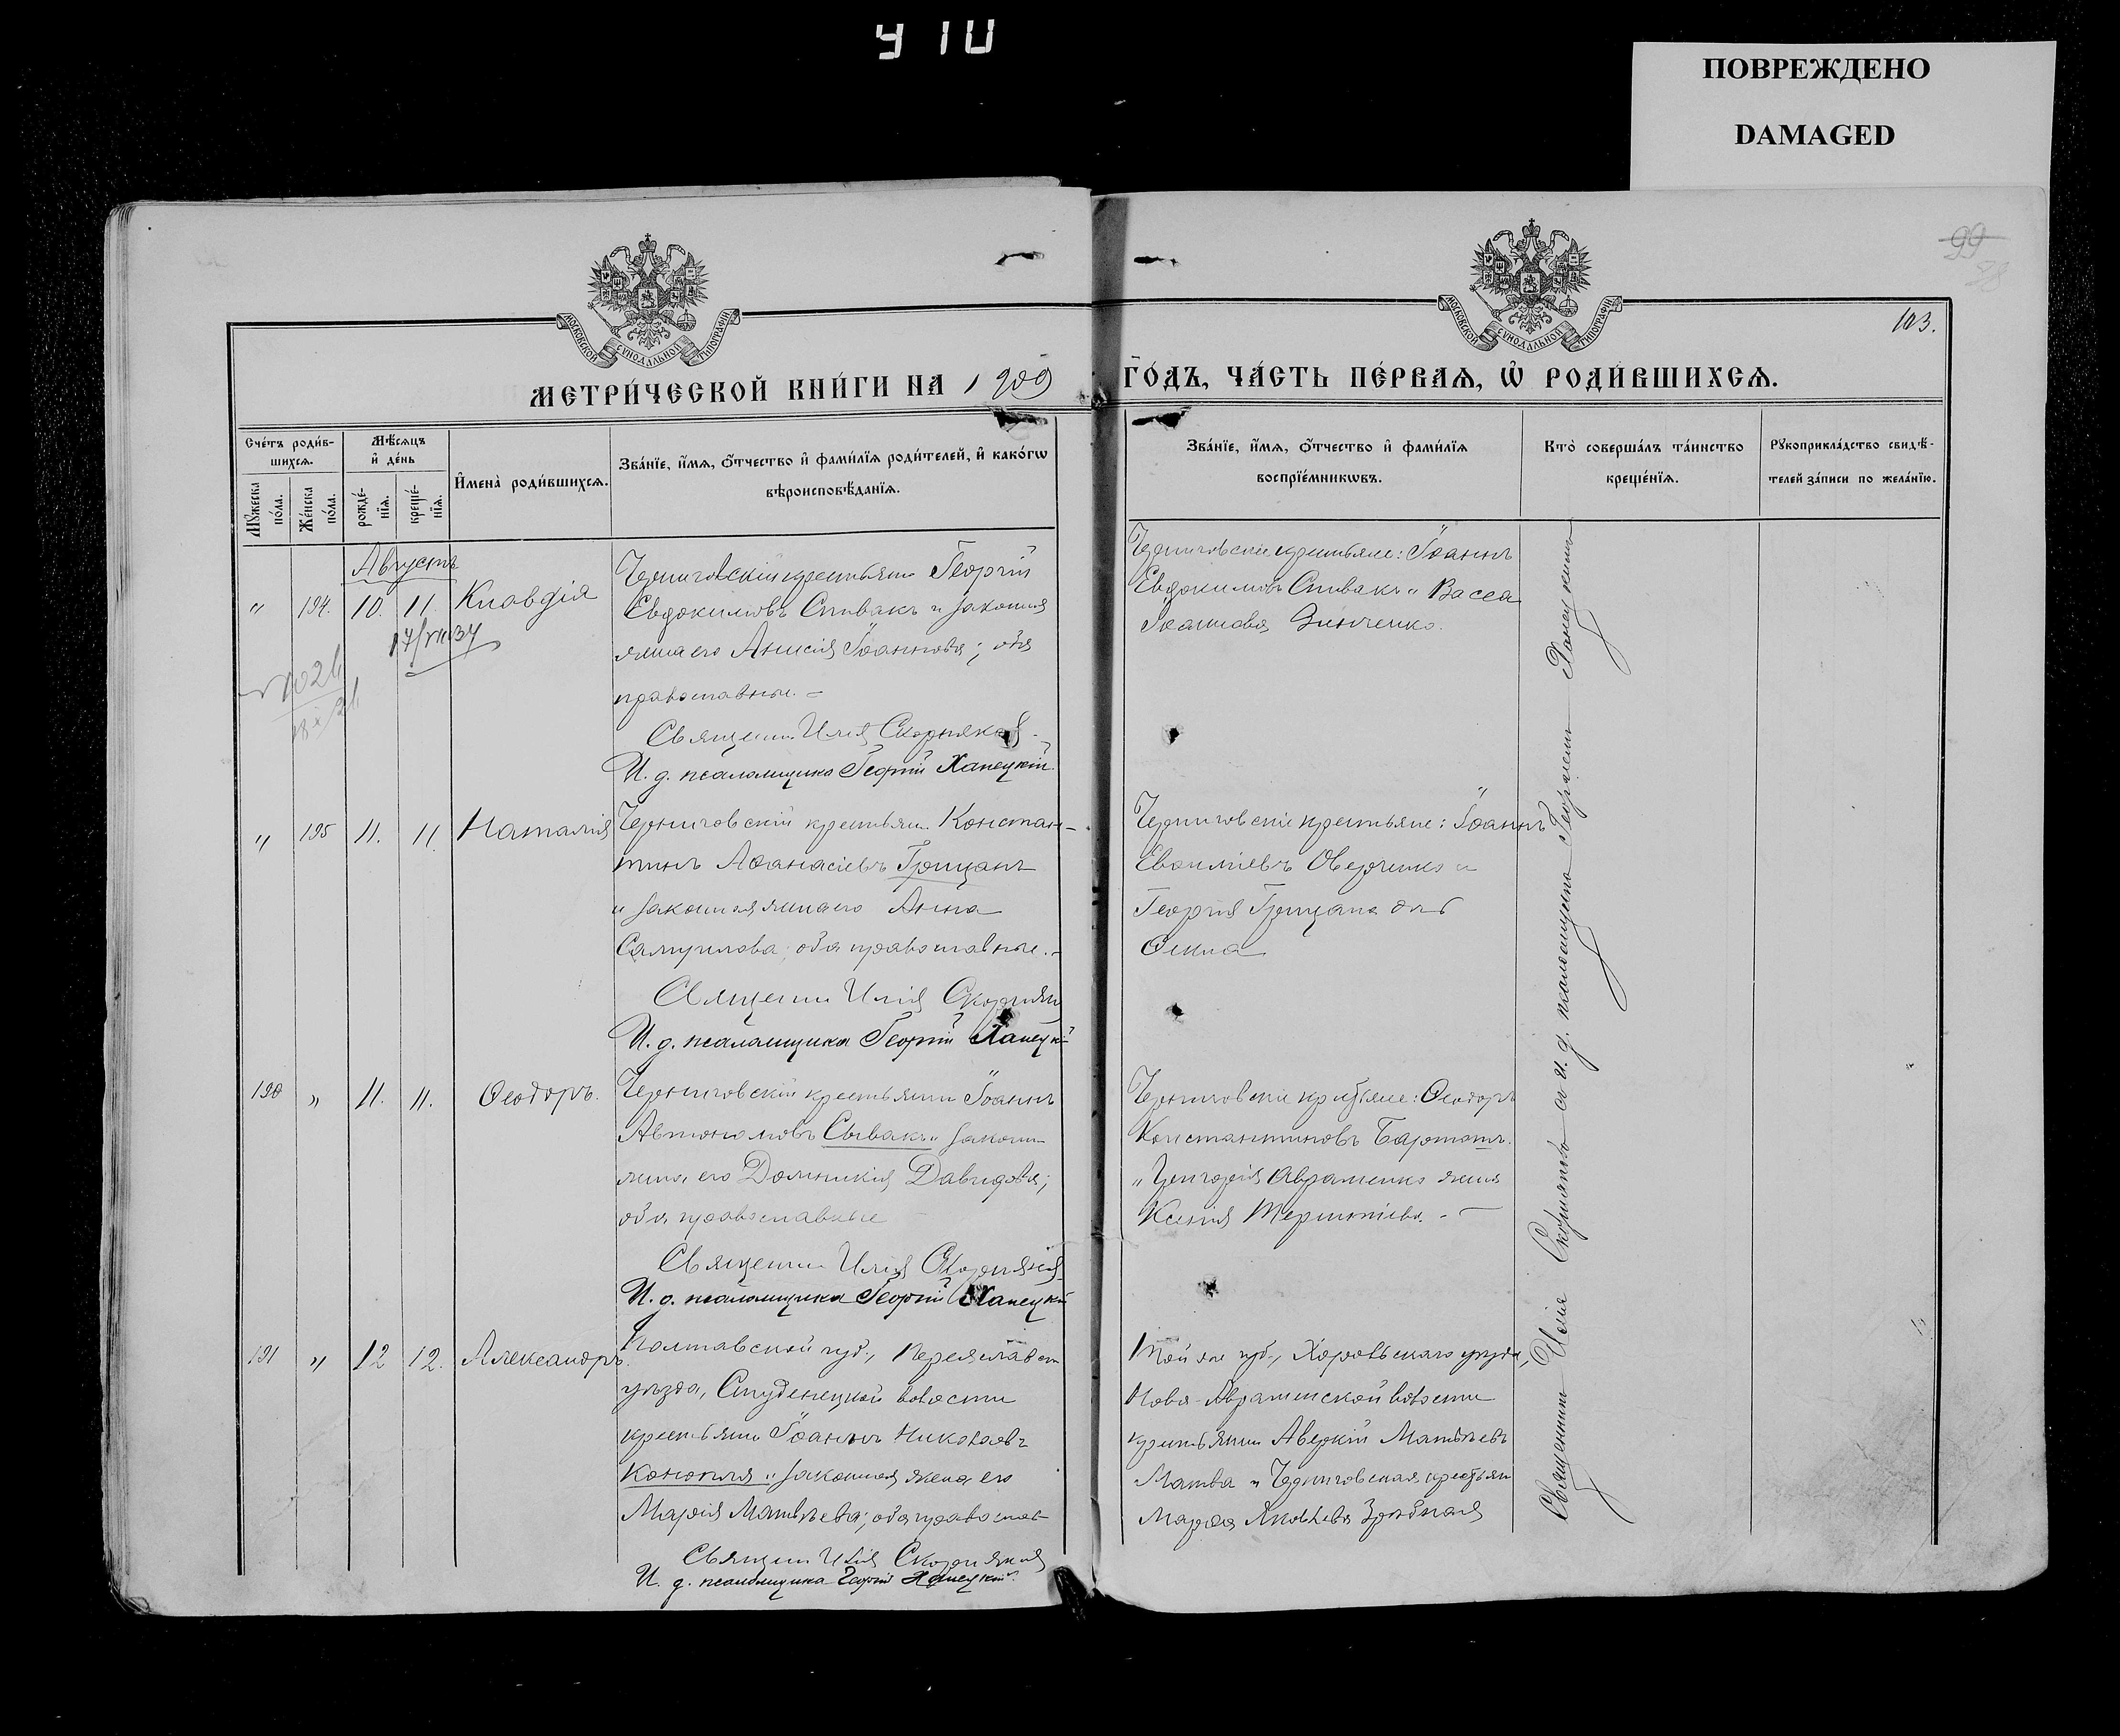 410
ПОВРЕЖДЕНО
DAMAGED
99
103.
МОСКОВСКОЙ СѴНОДАЛЬНОЙ ТИПОГРАФІИ
МОСКОВСКОЙ СѴНОДАЛЬНОЙ ТИПОГРАФІИ
МЕТРИ́ЧЕСКОЙ КНИ́ГИ НА 1909
ГО́ДЪ, ЧА́СТЬ ПЕ́РВАѦ, Ѽ РОДИ́ВШИХСѦ.
Сче́тъ роди́в-
шихсѧ.
Мꙋ́жеска по́ла.
Же́нска по́ла.
Мѣ́сѧцъ
и҆ де́нь
рожде́-нїѧ.
креще́-нїѧ.
И҆мена̀ роди́вшихсѧ.
Зва́нїе, и҆́мѧ, ѻ҆́тчество и҆ фами́лїѧ роди́телей, и҆ како́гѡ
вѣроисповѣ́данїѧ.
Зва́нїе, и҆́мѧ, ѻ҆́тчество и҆ фами́лїѧ
воспрїе́мникѡвъ.
Кто̀ соверша́лъ та́инство
креще́нїѧ.
Рꙋкоприкла́дство свидѣ́-
телей за́писи по жела́нїю.
Августъ
" 194. 10. 11. Клавдія
17/VII 37
Черниговскій крестьянин Георгій
Евдокимовъ Спивакъ и законная
жена его Анисія Іоаннова; оба
православные. –
Священ. Илія Скорняковъ
И. д. псаломщика Георгій Ханецкій.
Черниговскіе крестьяне: Іоаннъ
Евдокимовъ Спивакъ и Васса
Іоаннова Зинченко.
" 195 11. 11. Наталія
Черниговскій крестьян. Констан-
тинъ Аѳанасіевъ Грицанъ
и законная жена его Анна
Самуилова; оба православные. –
Священ Илія Скорняк
И. д. псаломщика Георгій Ханецкій
Черниговскіе крестьяне: Іоаннъ
Евѳиміевъ Оверченко и
Георгія Грицана
Ѳекла
190 " 11. 11. Ѳеодоръ.
Черниговскій крестьянин Іоаннъ
Автономовъ Спивакъ и законн
жена его Домникія Давидова;
оба православные
Священ Илія Скорняков
И. д. псаломщика Георгій Ханецкій
Черниговскіе крестьяне: Ѳеодоръ
Константиновъ
и Григорія Авраменко жена
Ксенія Терентіева. –
191 " 12 12. Александръ.
Полтавской губ., Переяславск
уѣзда, Студенецкой волости
крестьянин Іоаннъ Николаевъ
Конопля и законная жена его
Марія Матвѣева; оба православ
Священ Илія Скорняков
И. д. псаломщика Георгій Ханецкій.
Той же губ., Хорольскаго уѣзда,
Ново-Аврамовской волости
крестьянин Аверкій Матвѣевъ
и Черниговская крестьян
Марѳа Яковлева
Священникъ Илія Скорняковъ съ и. д. псаломщика Георгіемъ Ханецкимъ